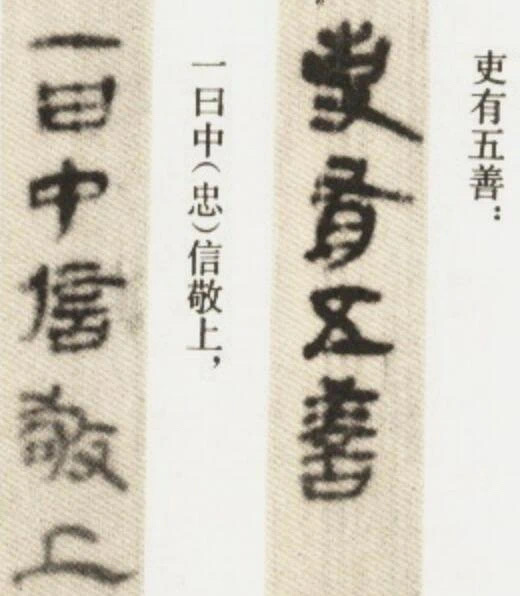 吏有五善：
吏有五善
一曰中（忠）信敬上，
一曰中信敬上